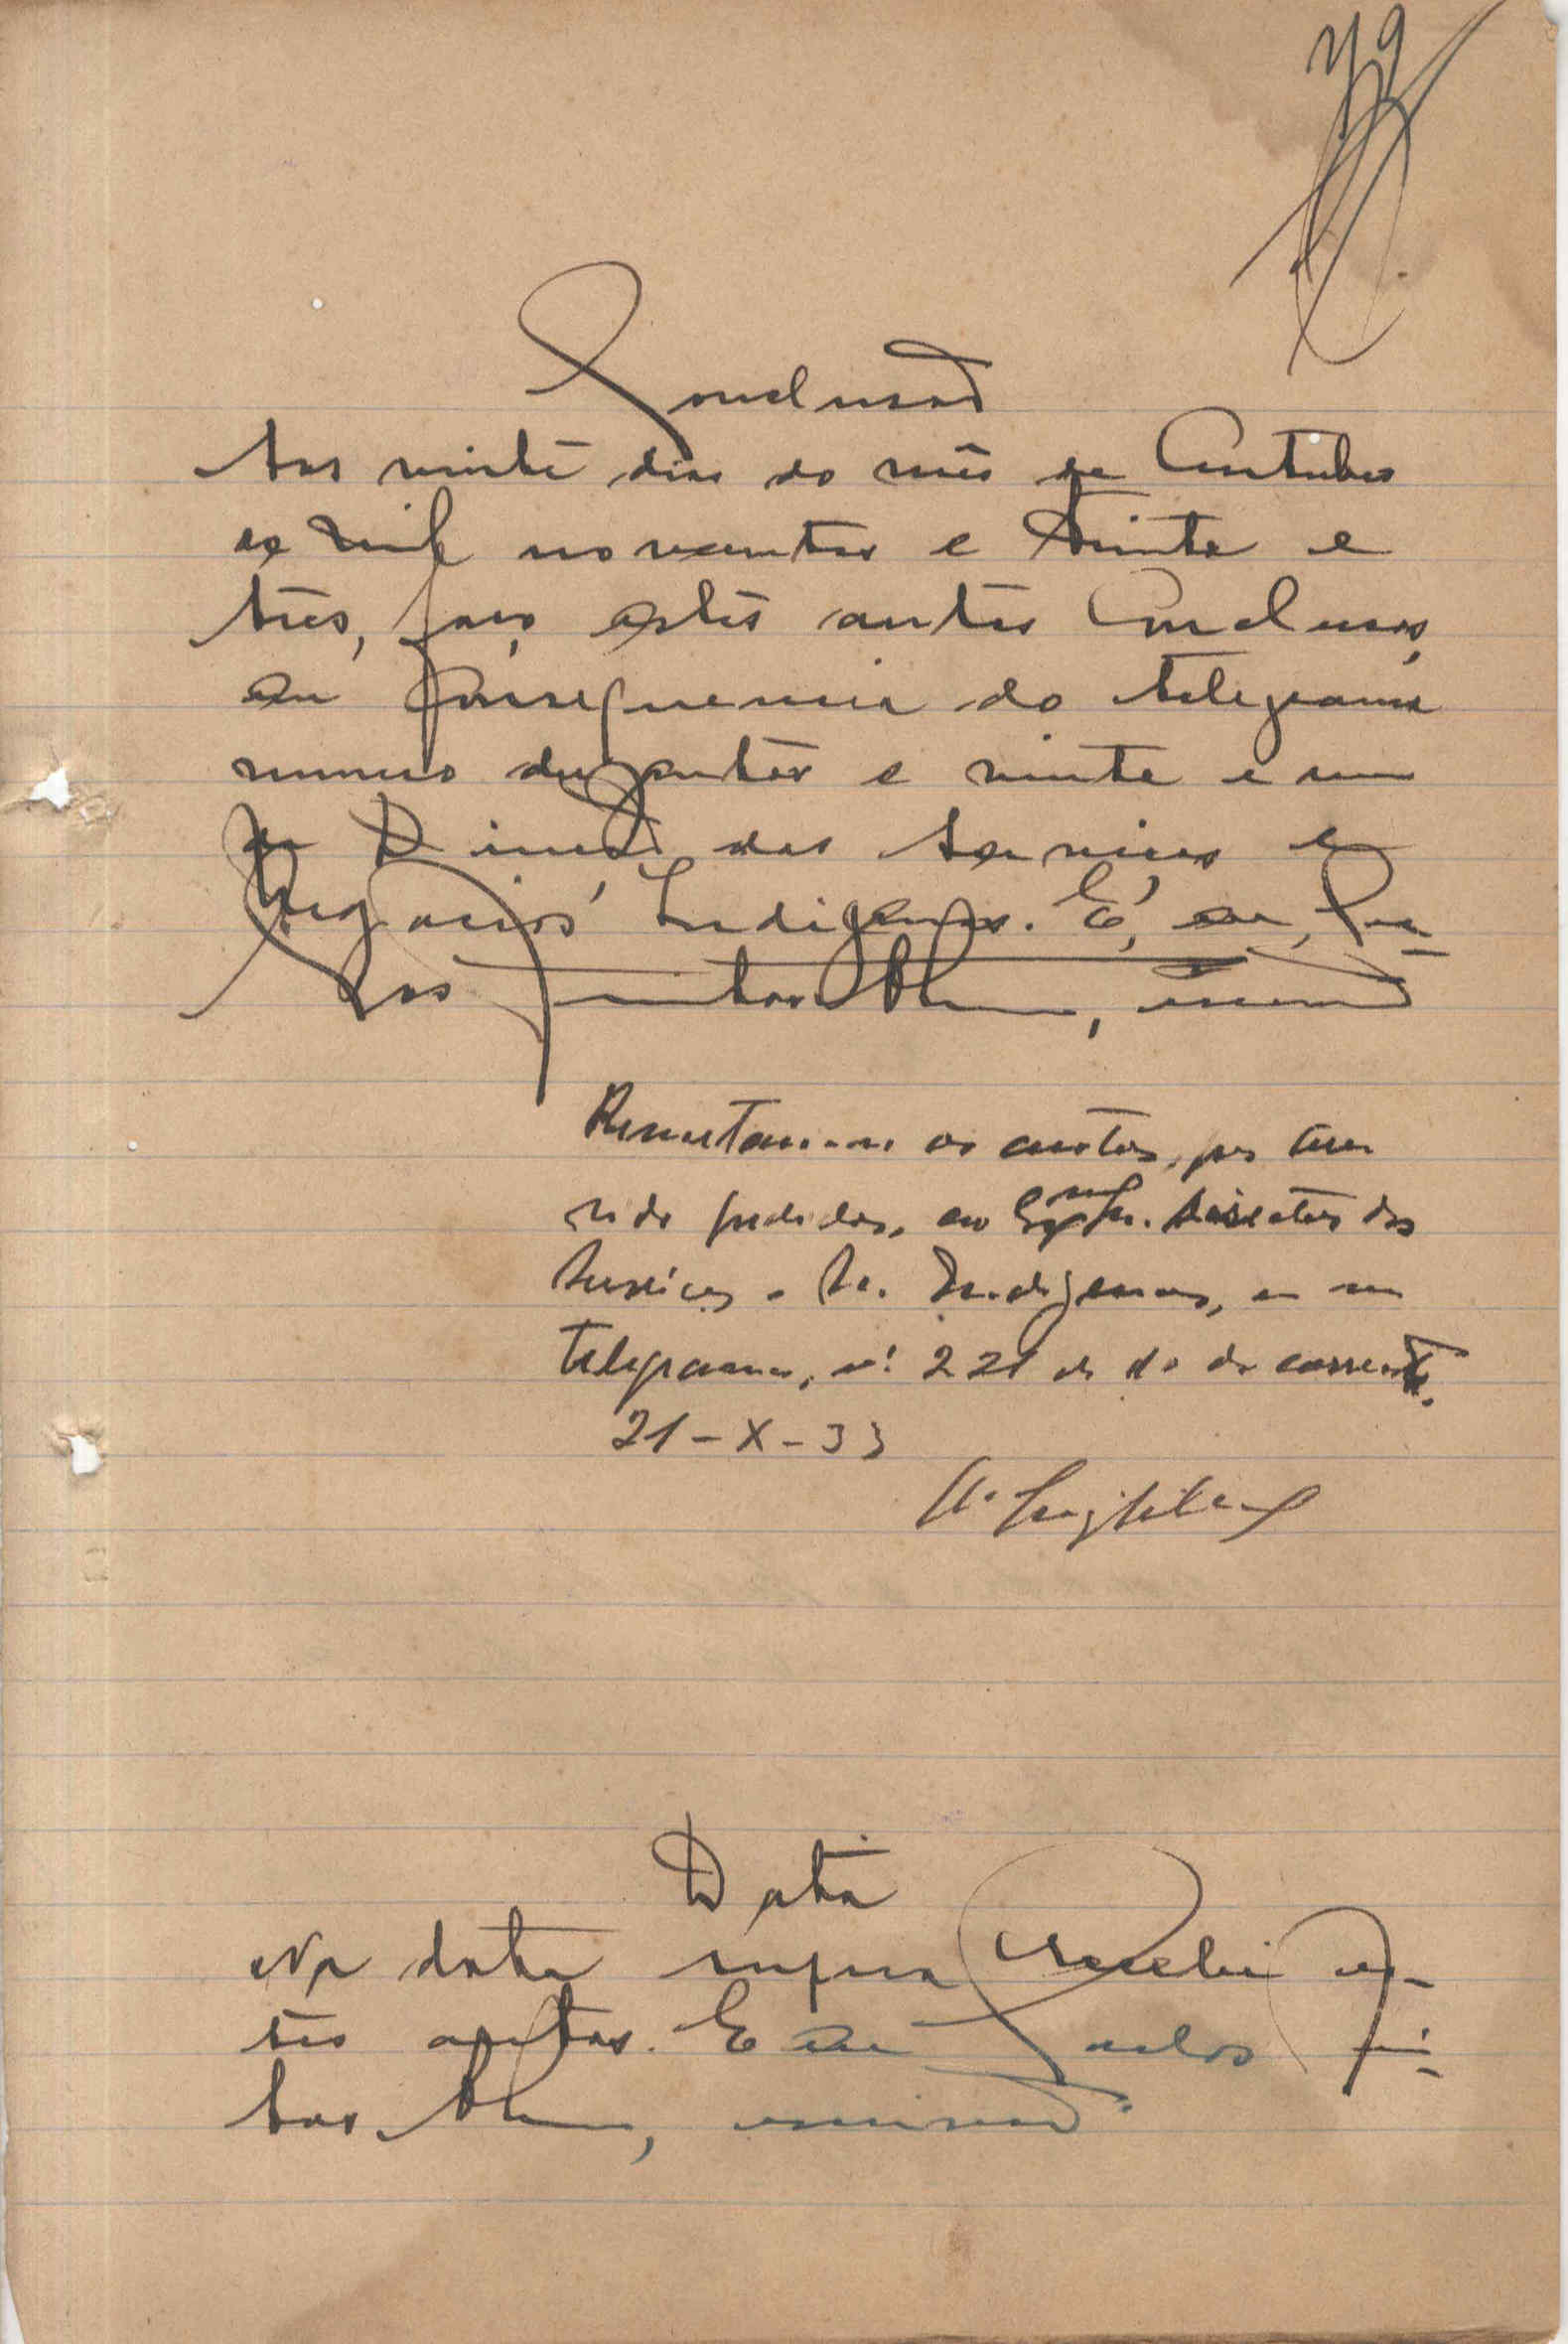 79
Conclusão
Aos vinte dias do mês de Outubro
de mil novecentos e trinta e
três, faço estes autos conclusos,
em consequencia do telegrama
numero duzentos e vinte e um
da Direcção dos Serviços e
Negocios Indigenas. E, eu, Car-
los Freitas, escrivão
Remetam-se os autos, por terem
sido pedidos, ao Exmº Sr. Director dos
Serviços e N. Indigenas, em seu
telegrama, nº 221 de 10 do corrente.
21-X-33
Data
Na data supra recebi es-
tes autos. E eu Carlos Frei-
tas, escrivão